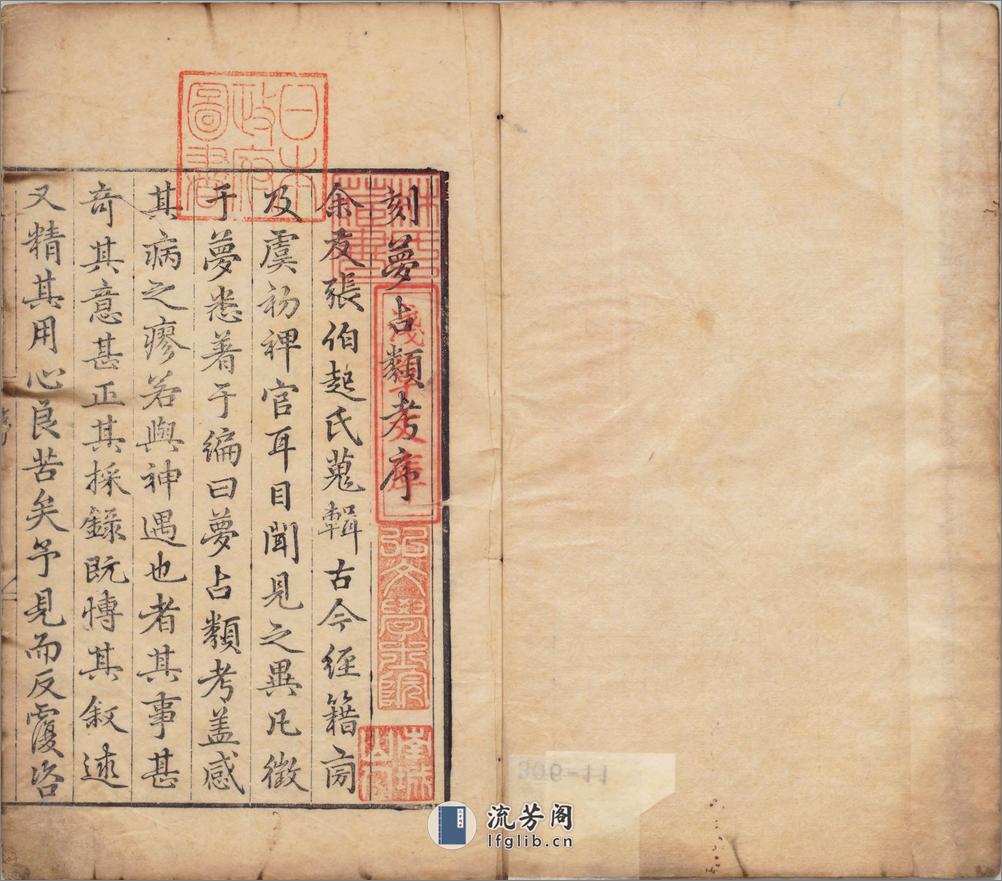 刻夢占類考序
余友張伯起氏蒐輯古今經籍旁
及虞初稗官耳目聞見之異凡徵
于夢悉著于編曰夢占類考盖感
其病之瘳若與神遇也者其事甚
奇其意甚正其採錄既慱其叙述
又精其用心良苦矣予見而反覆咨
日本
政府
圖書
淺草文庫
弘文學士院
309-11
流芳阁
lfglib.cn